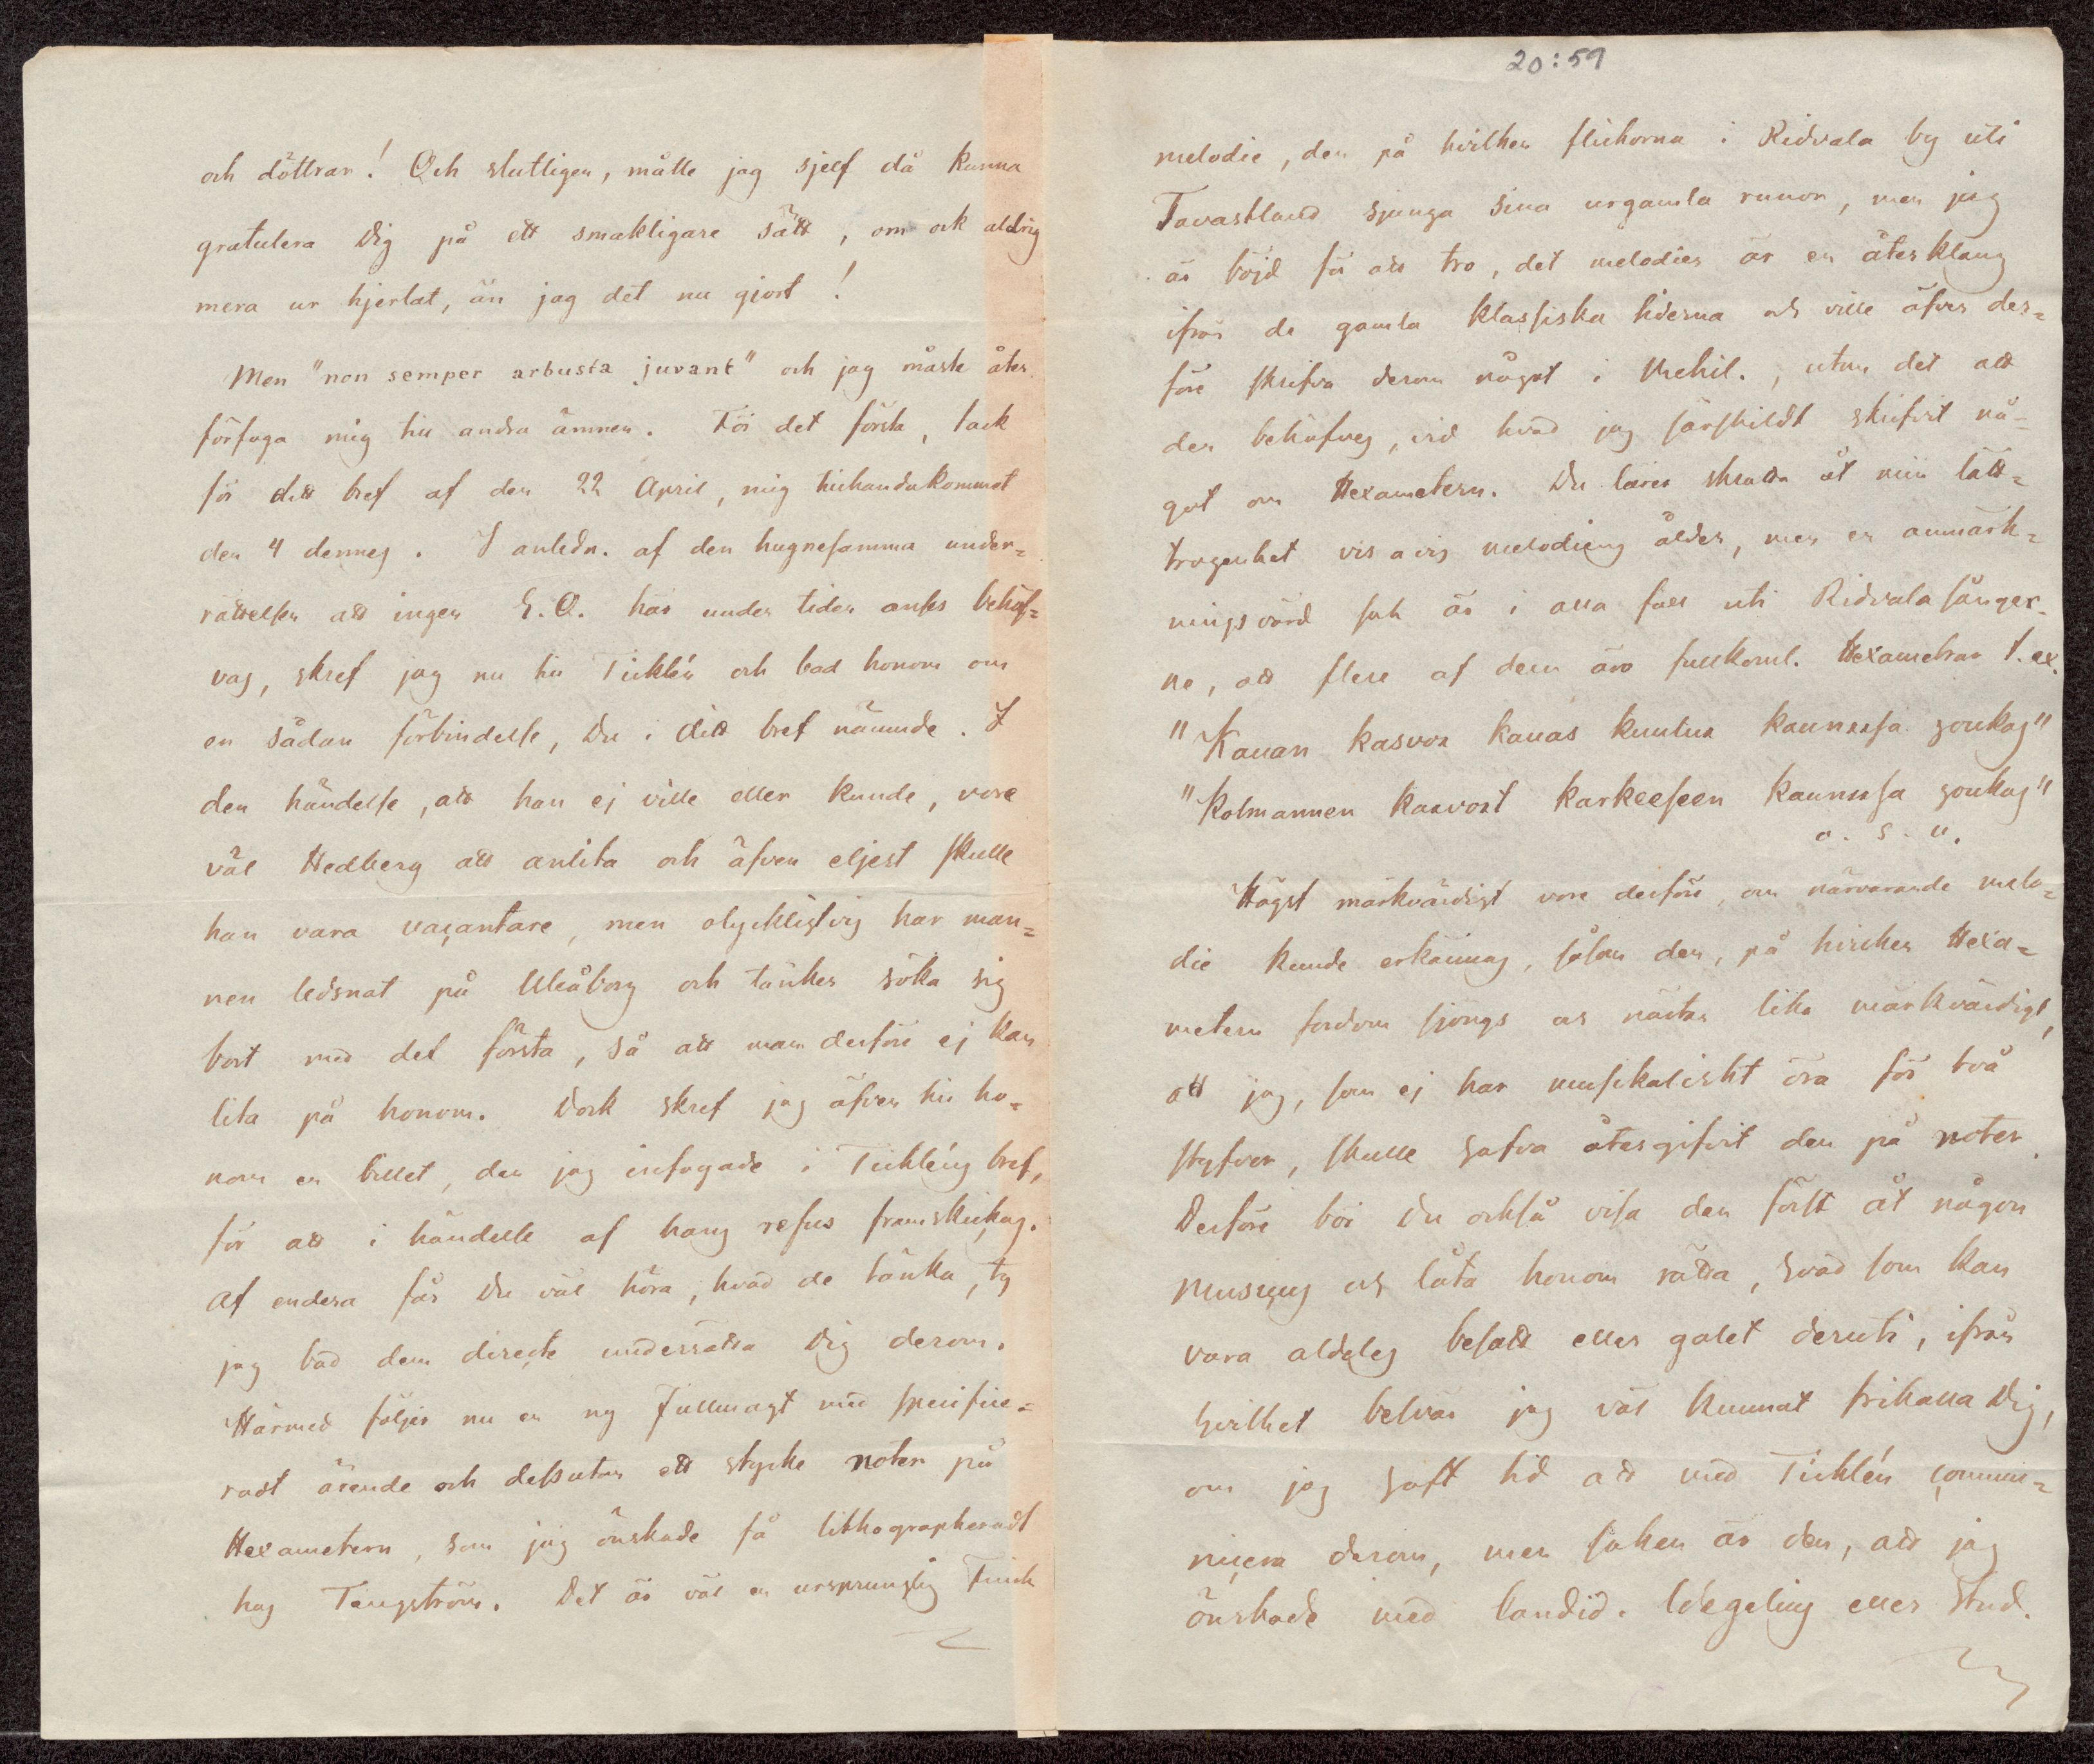 och döttrar! Och slutligen, måtte jag sjelf då kunna
gratulera Dig på ett smakligare sätt, om ock aldrig
mera ur hjertat, än jag det nu gjort!
Men "non semper arbusta juvant" och jag måste åter
förfoga mig till andra ämnen. För det första, tack
för ditt bref af den 22 April, mig tillhandakommet
den 4 dennes. I anledn. af den hugnesamma under-
rättelsen att ingen E.O. här under tiden anses behöf-
vas, skref jag nu till Ticklén och bad honom om
en sådan förbindelse, Du i ditt bref nämnde. I
den händelse, att han ej ville eller kunde, vore
väl Hedberg att anlita och äfven eljest skulle
han vara vaçantare, men olyckligtvis har man-
nen ledsnat på Uleåborg och tänker söka sig
bort med det första, så att man derföre ej kan
lita på honom. Dock skref jag äfven till ho-
nom en billet, den jag infogade i Tickléns bref,
för att i händelse af hans refus framskickas.
Af endera får Du väl höra, hvad de tänka, ty
jag bad dem direçte underrätta Dig derom.
Härmed följer nu en ny Fullmagt med specifice-
radt ärende och dessutom ett stycke noter på
Hexametern, som jag önskade få litthographeradt
hos Tengström. Det är väl en ursprunglig Finsk
20:59
melodie, den på hvilken flickorna i Ridvala by uti
Tavastland sjunga sina urgamla runor, men jag
är böjd för att tro, det melodien är en återklang
ifrån de gamla klassiska tiderna och ville äfven der-
före skrifva derom något i Mehil., utom det att
den behöfves, vid hvad jag särskildt skrifvit nå-
got om Hexametern. Du lärer skratta åt min lätt-
trogenhet vis a vis melodiens ålder, men en anmärk-
ningsvärd sak är i alla fall uti Ridvala sånger-
ne, att flere af dem äro fullkoml. Hexametrar t.ex.
"Kauan kasvoi kauas kuulua kaunissa joukos"
"Kolmannen kasvoit karkeeseen kaunissa joukos"
o. s. v.
Högst märkvärdigt vore derföre, om närvarande melo-
die kunde erkännas, såsom den, på hvilken Hexa-
metern fordom sjöngs och nästan lika märkvärdigt,
att jag, som ej har musikaliskt öra för två
styfver, skulle hafva återgifvit den på noter.
Derföre bör Du också visa den först åt någon
Musiçus och låta honom rätta, hvad som kan
vara aldeles besatt eller galet deruti, ifrån
hvilket besvär jag väl kunnat frikalla Dig,
om jag haft tid att med Ticklén çommu-
niçera derom, men saken är den, att jag
önskade med Candid. Wegelius eller Stud.